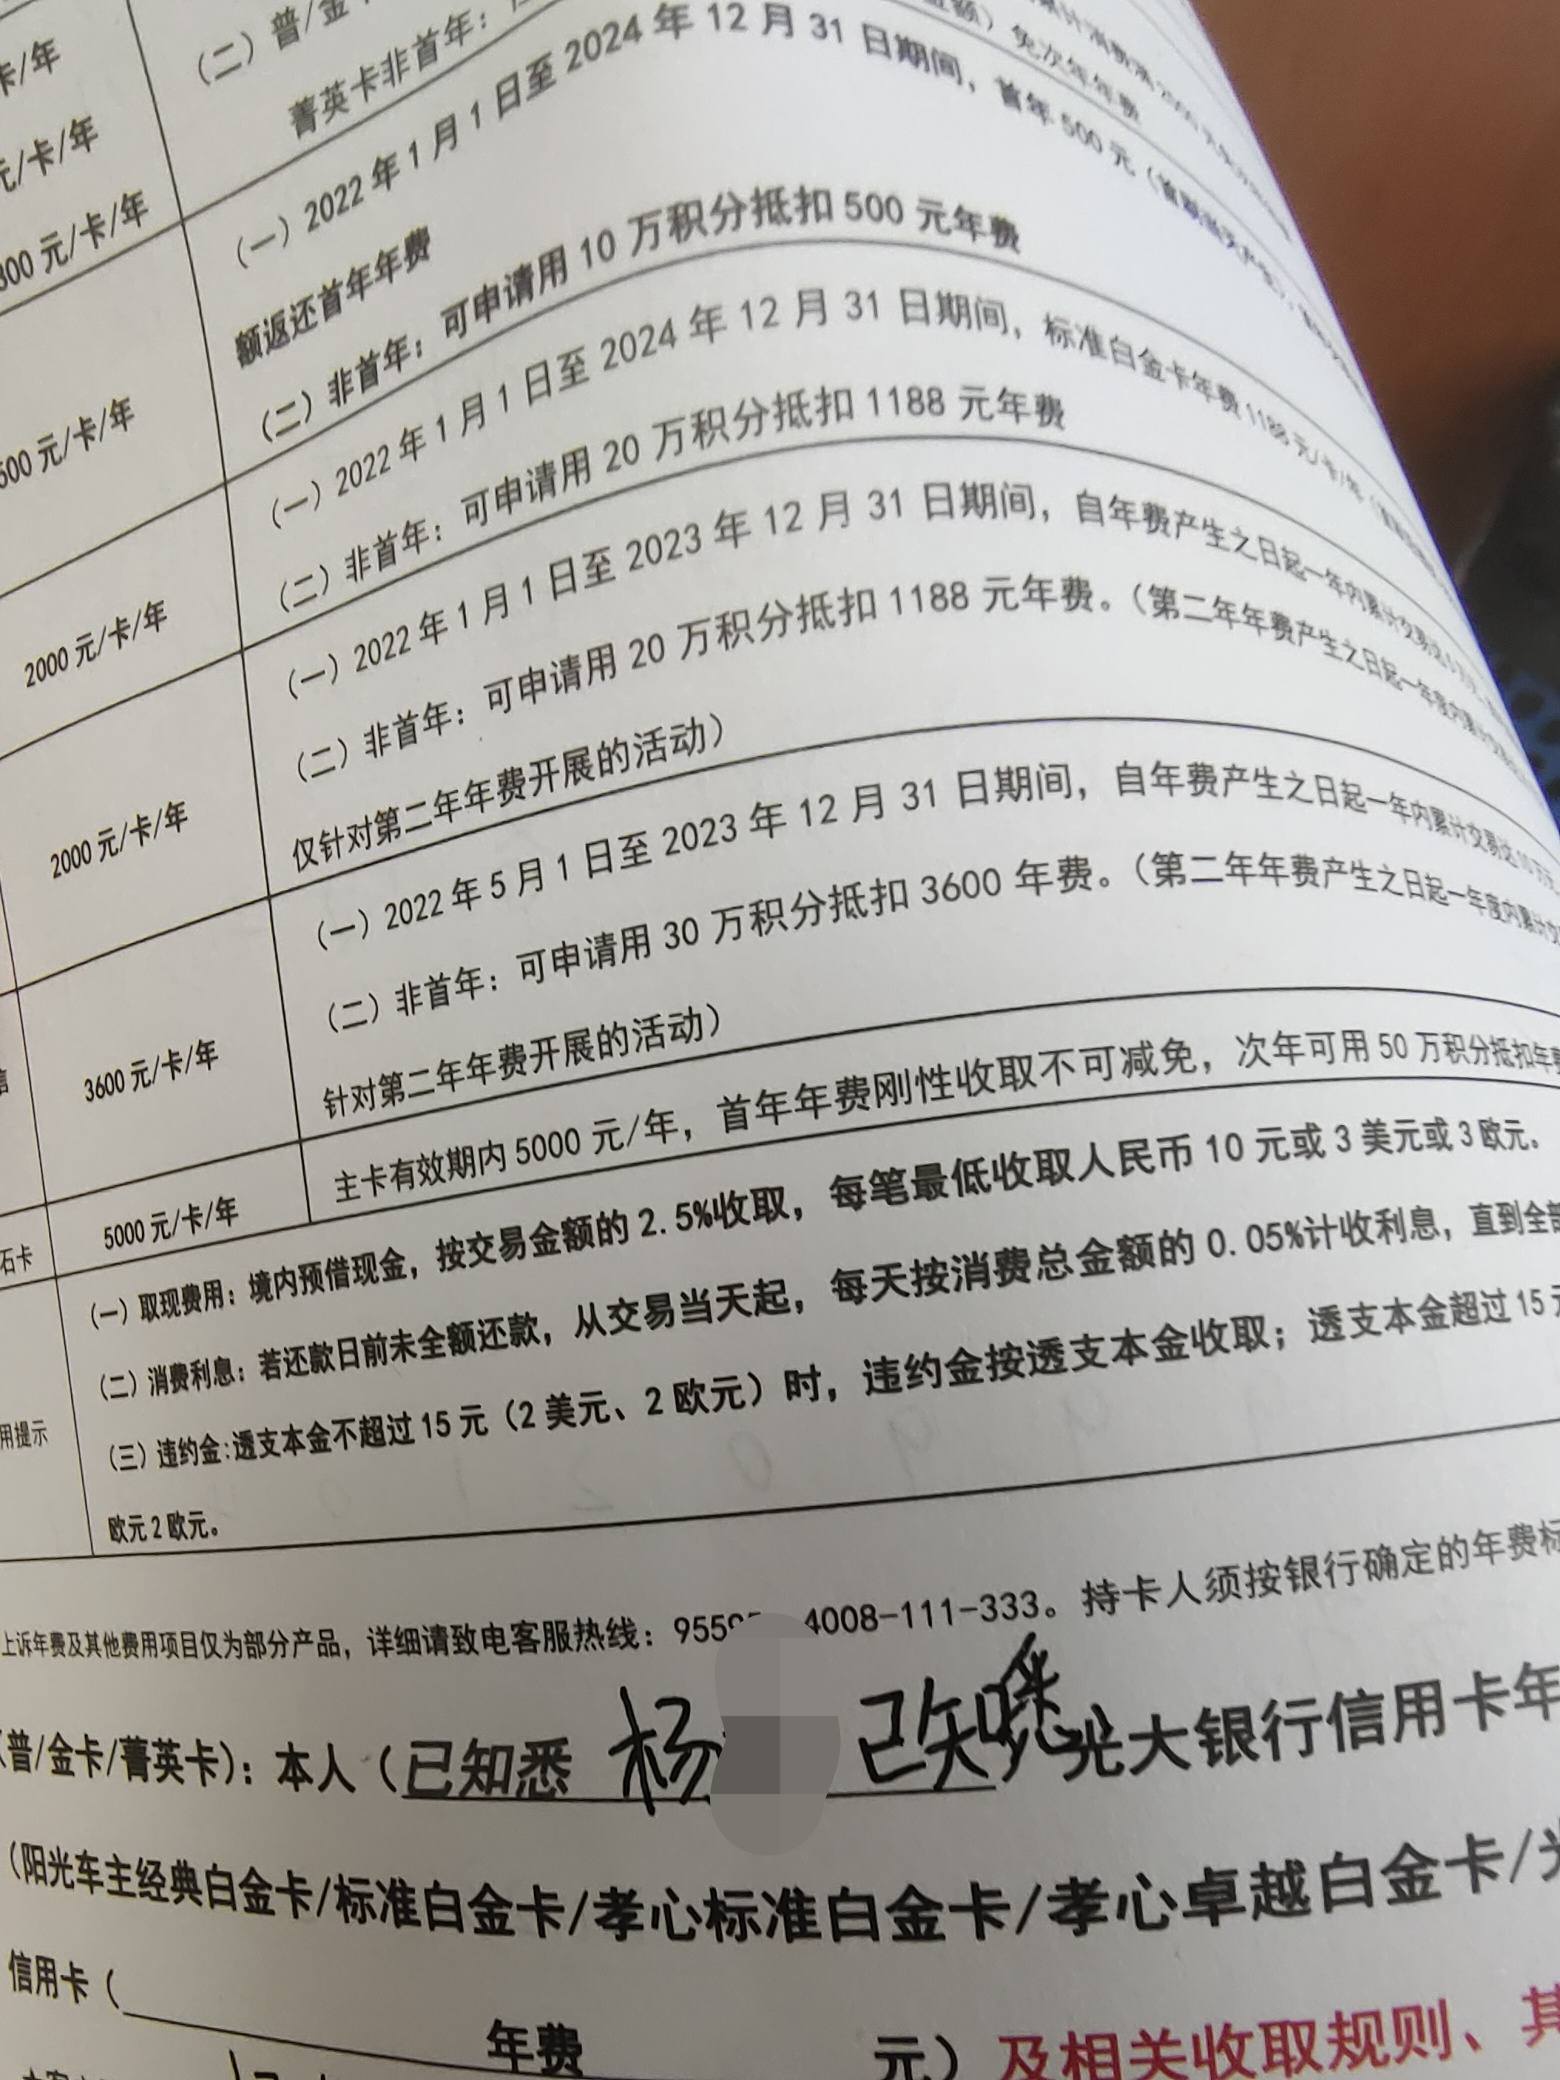 卡/年
（二）普/金
元/卡/年
菁英卡非首年：
300元/卡/年
（一）2022年1月1日至2024年12月31日期间，首年500元（
额返还首年年费
600元/卡/年
（二）非首年：可申请用10万积分抵扣500元年费
2000元/卡/年
（一）2022年1月1日至2024年12月31日期间，标准白金卡年费1188元/卡/年（
（二）非首年：可申请用20万积分抵扣1188元年费
2000元/卡/年
（一）2022年1月1日至2023年12月31日期间，自年费产生之日起一年内累计交易达
（二）非首年：可申请用20万积分抵扣1188元年费。（第二年年费产生之日起一年度内累计
仅针对第二年年费开展的活动）
3600元/卡/年
（一）2022年5月1日至2023年12月31日期间，自年费产生之日起一年内累计交易达10万元
（二）非首年：可申请用30万积分抵扣3600年费。（第二年年费产生之日起一年度内累计交
针对第二年年费开展的活动）
石卡
5000元/卡/年
主卡有效期内5000元/年，首年年费刚性收取不可减免，次年可用50万积分抵扣年费
用提示
（一）取现费用：境内预借现金，按交易金额的2.5%收取，每笔最低收取人民币10元或3美元或3欧元。
（二）消费利息：若还款日前未全额还款，从交易当天起，每天按消费总金额的0.05%计收利息，直到全部
（三）违约金:透支本金不超过15元（2美元、2欧元）时，违约金按透支本金收取；透支本金超过15元
欧元2欧元。
上诉年费及其他费用项目仅为部分产品，详细请致电客服热线：9559 4008-111-333。持卡人须按银行确定的年费标
（普/金卡/菁英卡）：本人（已知悉 杨 已知悉 光大银行信用卡年
（阳光车主经典白金卡/标准白金卡/孝心标准白金卡/孝心卓越白金卡/光
信用卡（ 年费 元）及相关收取规则、其